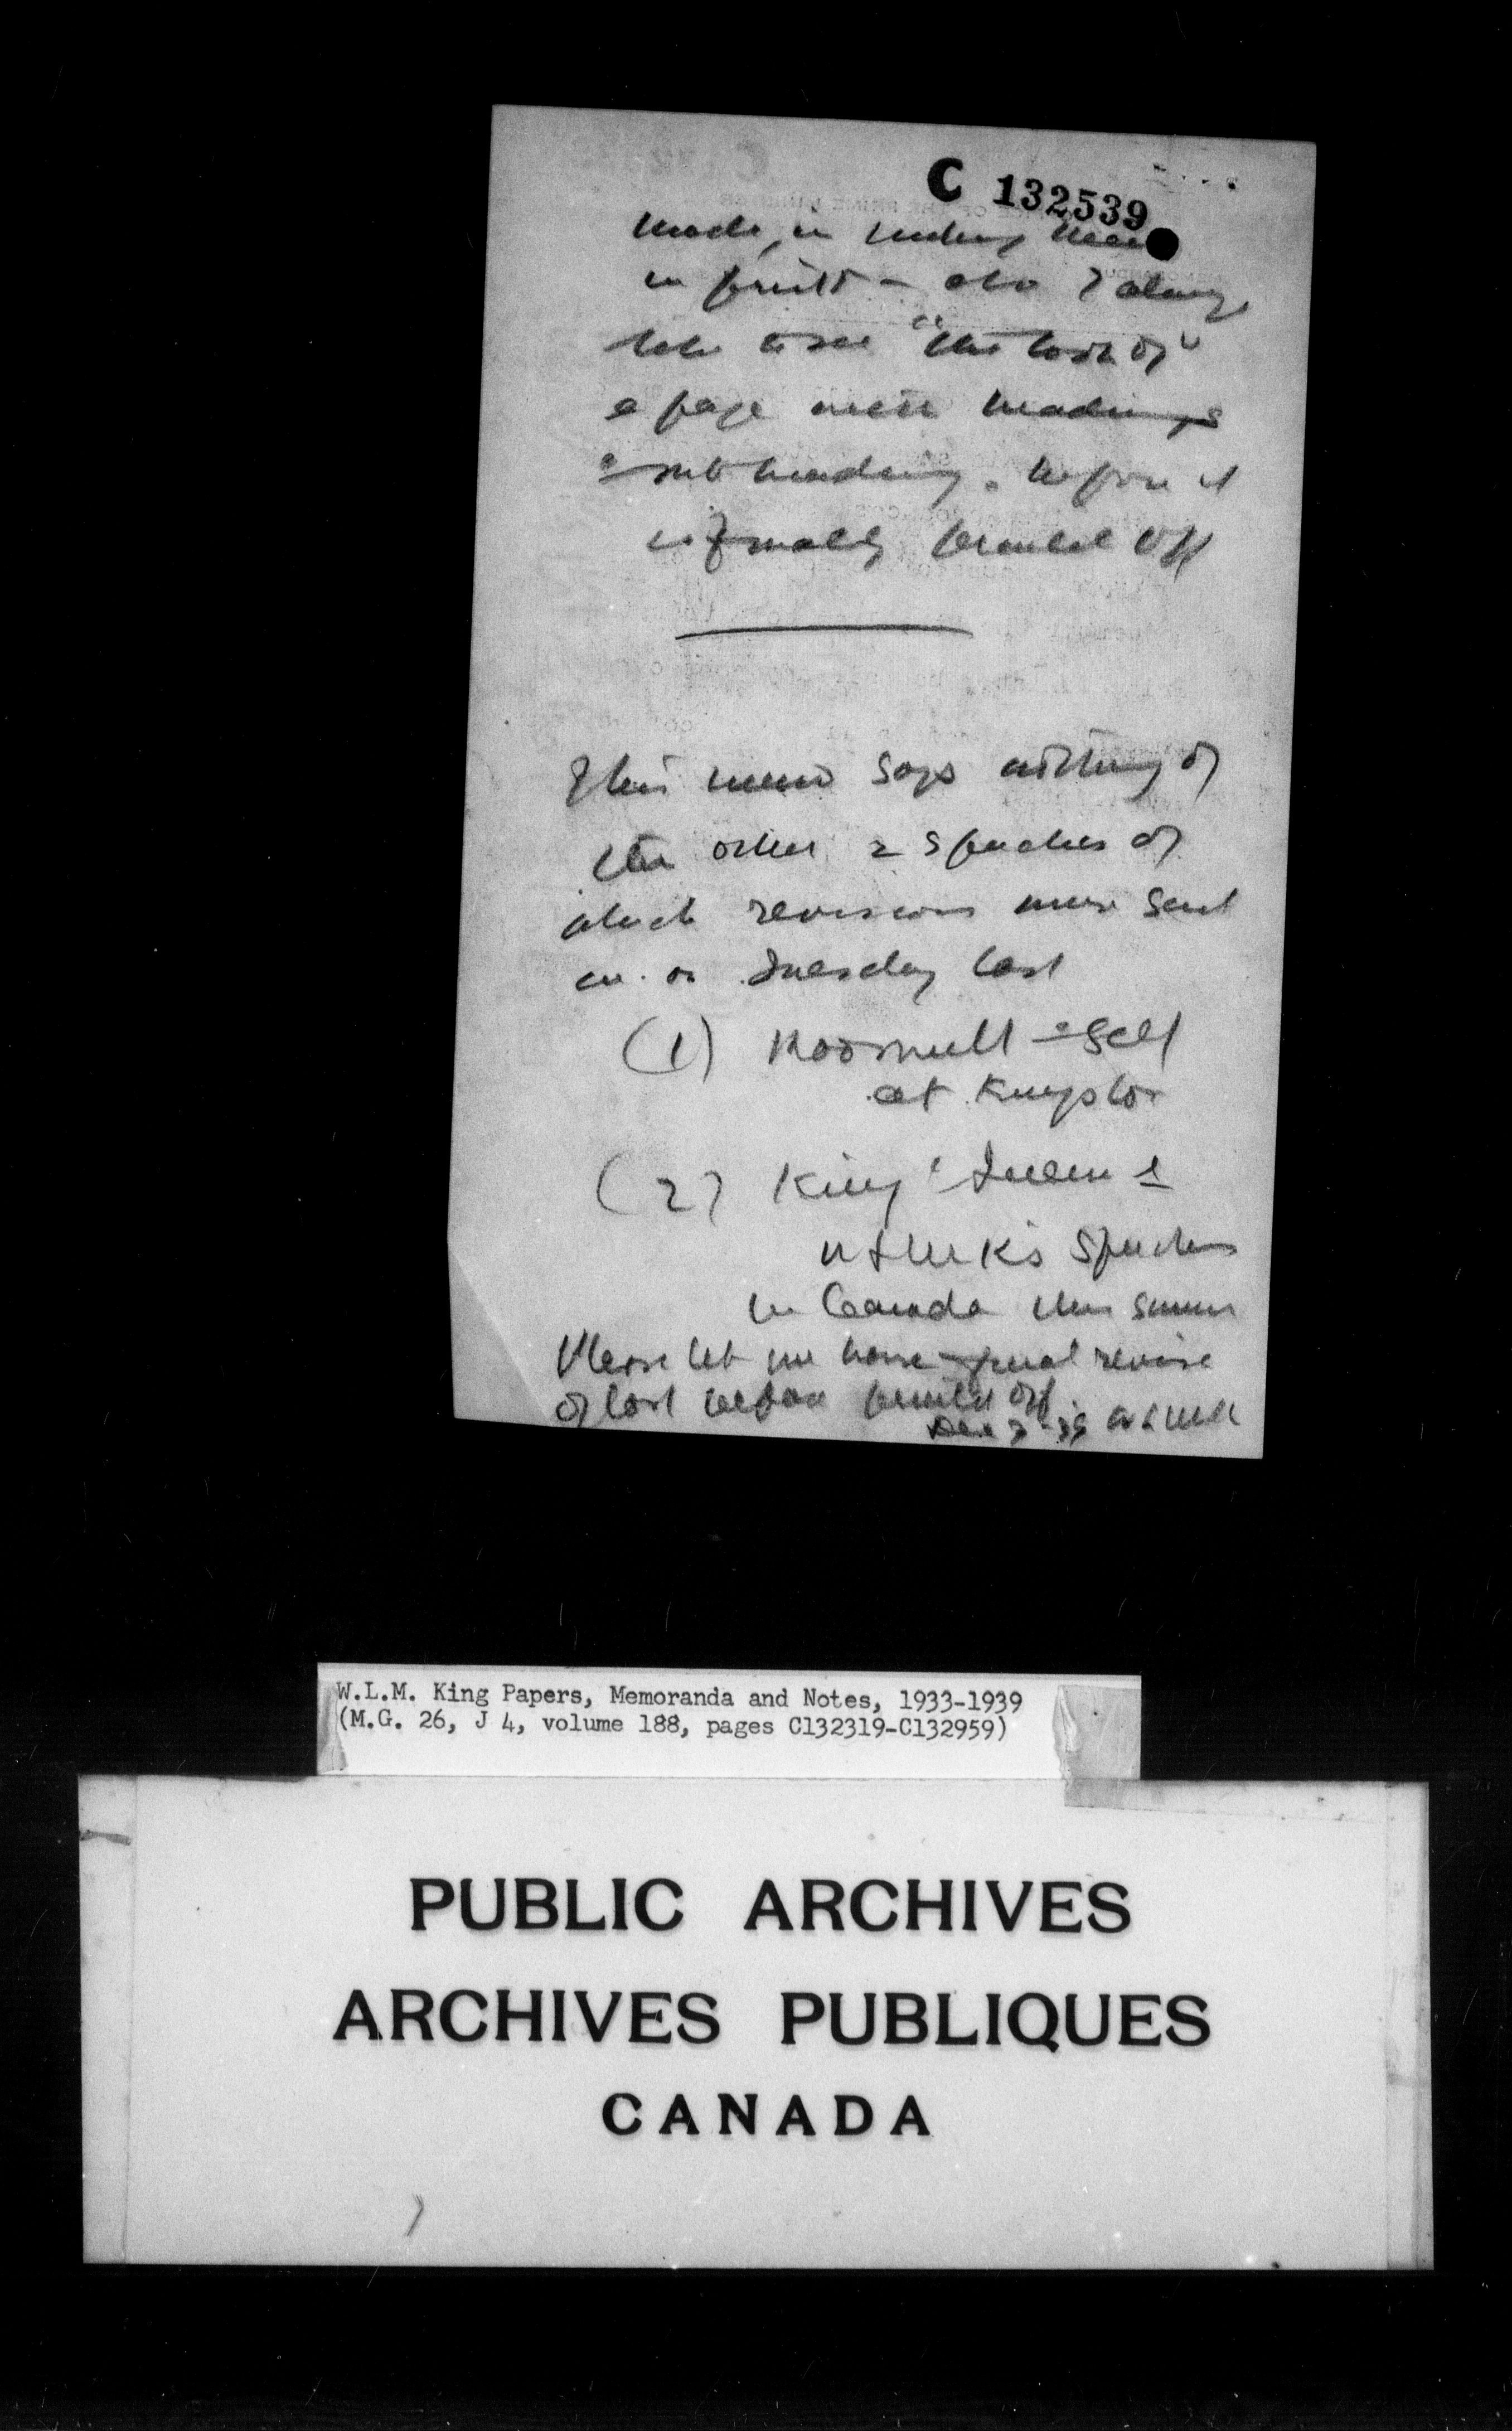 C 132539
made, in
in print – also I always
like to see "the look of"
a page with headings
& sub heading. before it
is finally printed off
This memo says nothing of
the other 2 speeches of
which revisions were sent
in on Tuesday last
(1) Roosevelt & self
at Kingston
(2) King & Queen &
speeches
in Canada this summer
Please let me have final revise
of last before printed off.
Dec 3-39
W.L.M. King Papers, Memoranda and Notes, 1933-1939
(M.G. 26, J 4, volume 188, pages C132319-C132959)
PUBLIC ARCHIVES
ARCHIVES PUBLIQUES
CANADA